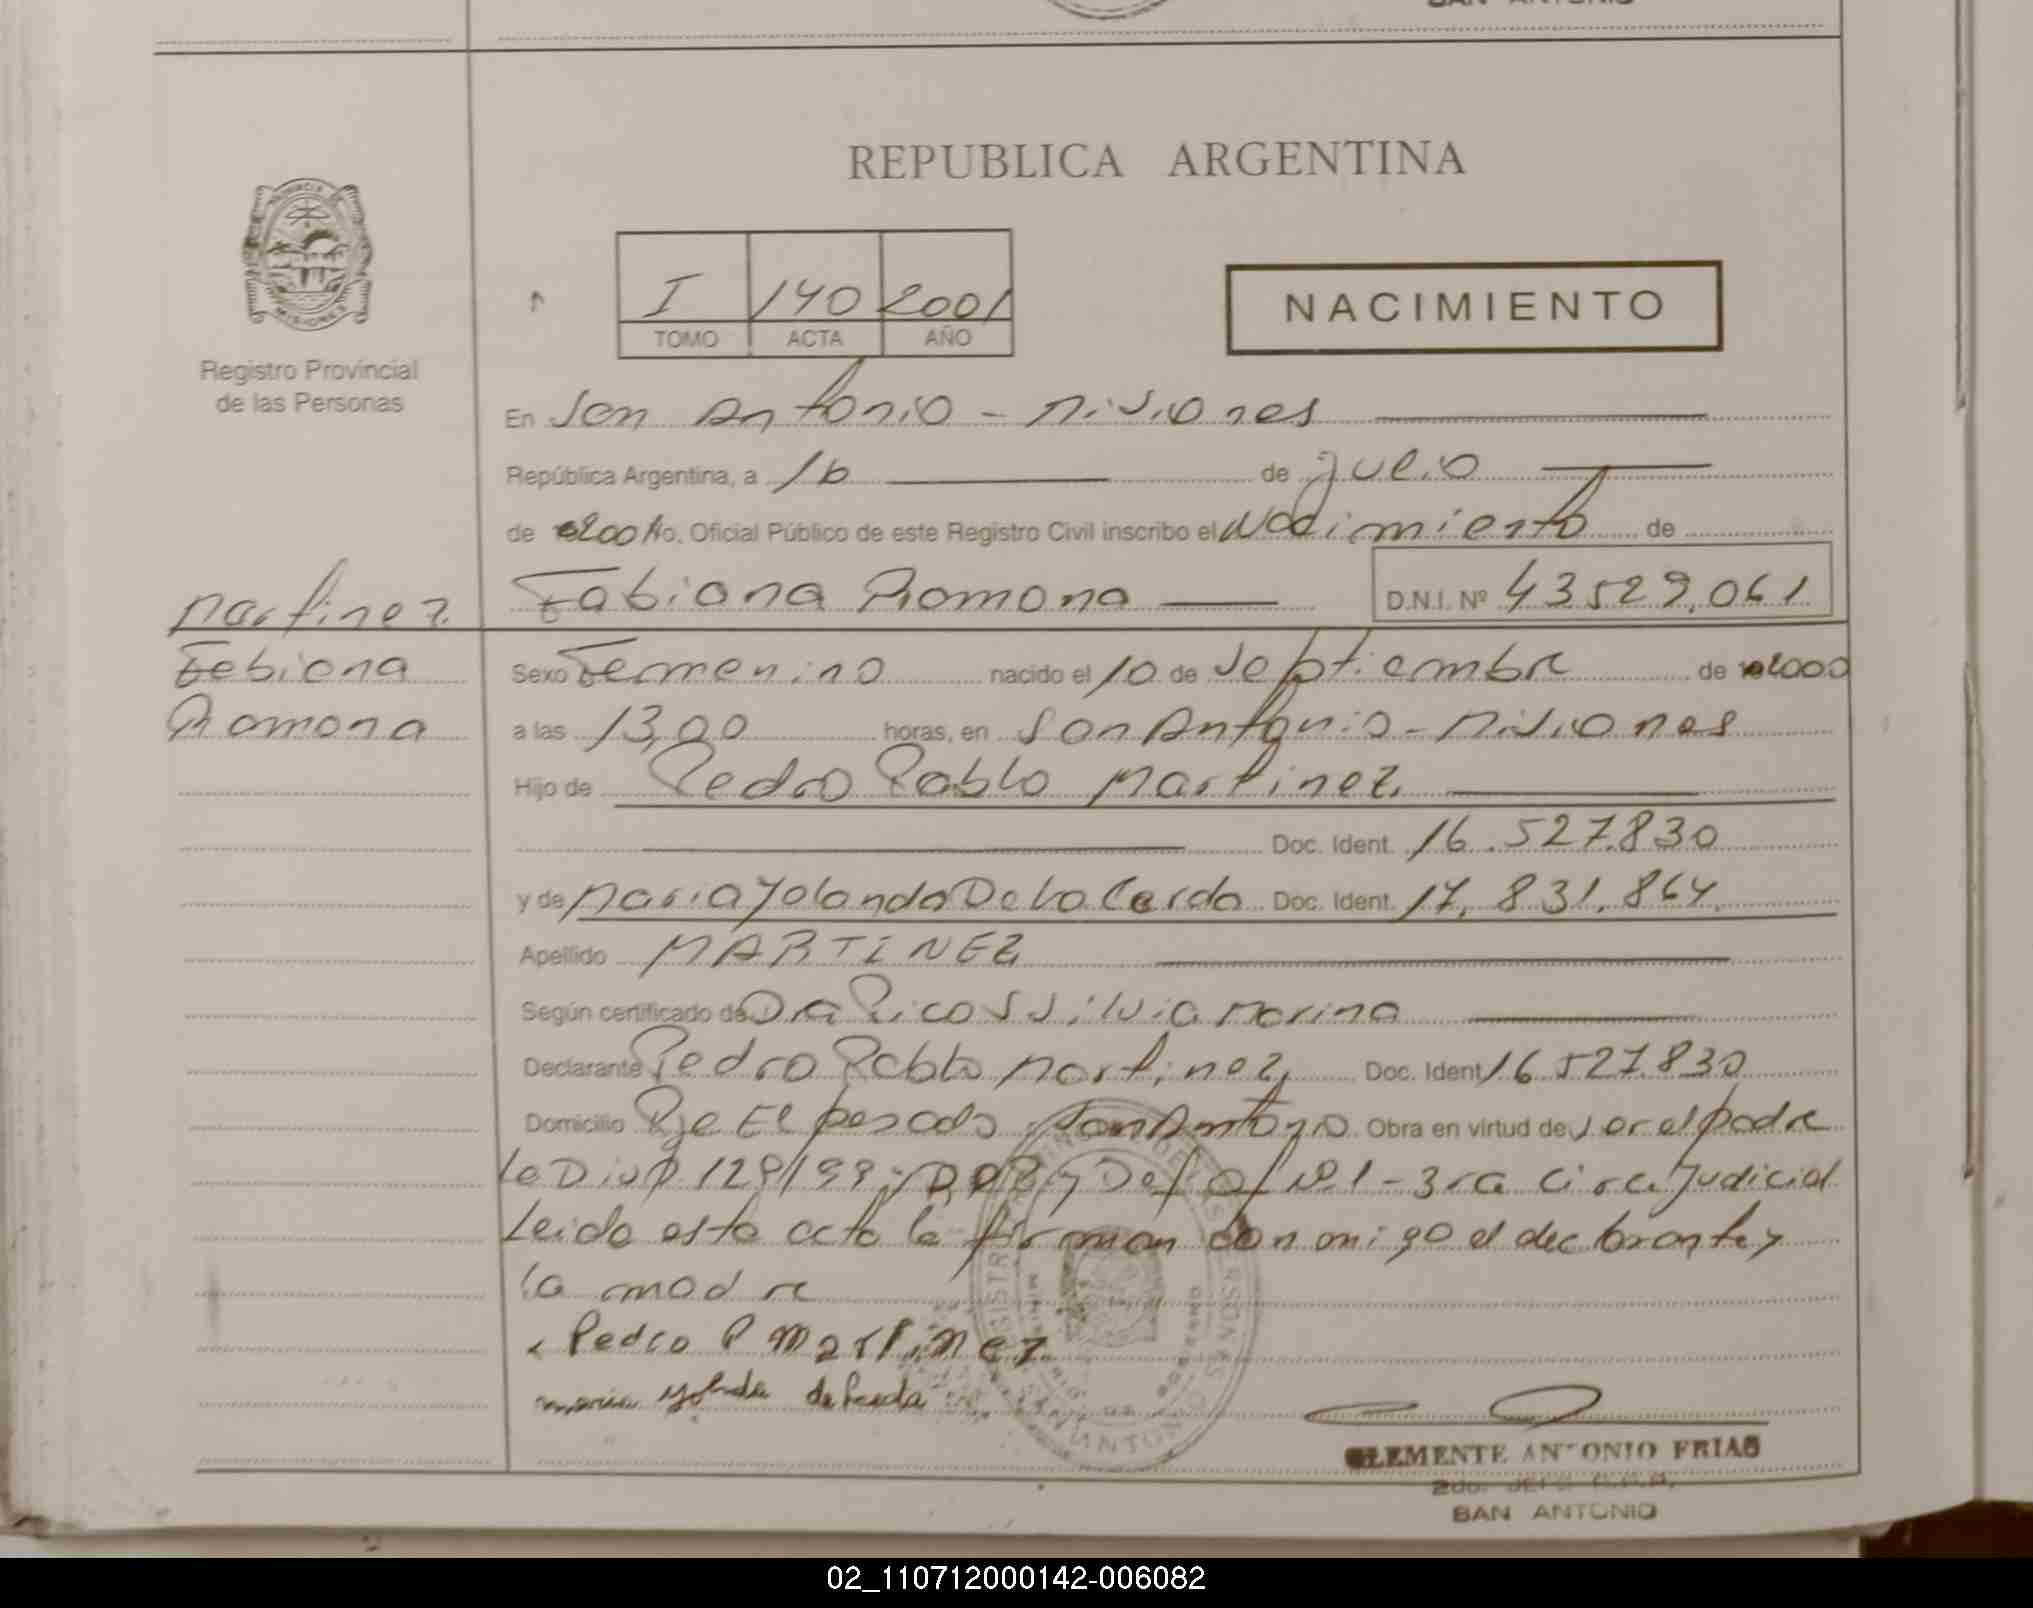 SAN ANTONIO
REPUBLICA ARGENTINA
PROVINCIA DE
MISIONES
Registro Provincial
de las Personas
I 140 2001
TOMO ACTA AÑO
NACIMIENTO
En San Antonio - Misiones
República Argentina, a 16 de julio
de 2001 Yo. Oficial Público de este Registro Civil inscribo el Nacimiento de
Martinez Fabiana Ramona D.N.I. Nº 43529.061
Fabiana
Ramona
Sexo Femenino nacido el 10 de Septiembre de 2000
a las 13,00 horas, en San Antonio - Misiones
Hijo de Pedro Pablo Martinez
Doc. Ident. 16.527.830
y de Maria Yolanda De La Cerda Doc. Ident. 17.831.864
Apellido MARTINEZ
Según certificado de Dra Ricos Silvia Marina
Declarante Pedro Pablo Martinez Doc. Ident 16527.830
Domicilio Pje El pesado San Antonio Obra en virtud de ser el padre
Le Disp 129/99; y Def of Nº 1 - 3ra Circ. Judicial
Leida esta acta la firman conmigo el declarante y
la madre
Pedro P Martinez
maria yolnda
CLEMENTE ANTONIO FRIAS
2do. JEFE
SAN ANTONIO
02_110712000142-006082